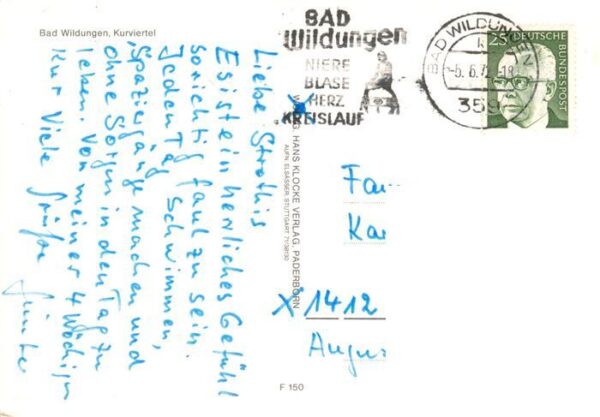 Bad Wildungen, Kurviertel
Liebe Strothis
Es ist ein herrliches Gefühl
so richtig faul zu sein.
Jeden Tag Schwimmen,
Spaziergänge machen und
ohne Sorgen in den Tag zu
leben. Von meiner 4 Wöchigen
Kur Viele Grüße
Günter
BAD
Wildungen
NIERE
BLASE
HERZ
KREISLAUF
BAD WILDUNGEN
359
25
DEUTSCHE
BUNDESPOST
HANS KLOCKE VERLAG, PADERBORN
AUFN. ELSÄSSER, STUTTGART
Fa
Ka
X 1412
Augu
F 150